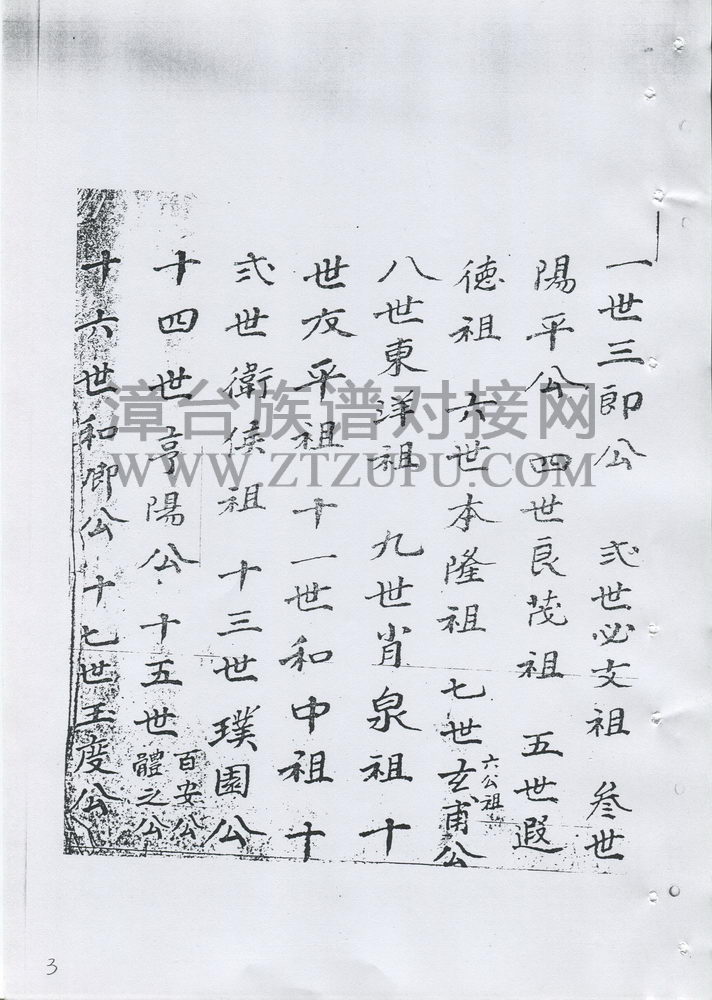 一世三郎公 弍世必文祖 叁世
陽平公 四世良茂祖 五世遐
德祖 六世本隆祖 七世玄甫公 六公祖
八世東洋祖 九世肖泉祖 十
世友平祖 十一世和中祖 十
弍世衛侯祖 十三世璞園公
十四世亨陽公 十五世 百安公 體之公
十六世和卿公 十七世玉度公
漳台族谱对接网
WWW.ZTZUPU.COM
3